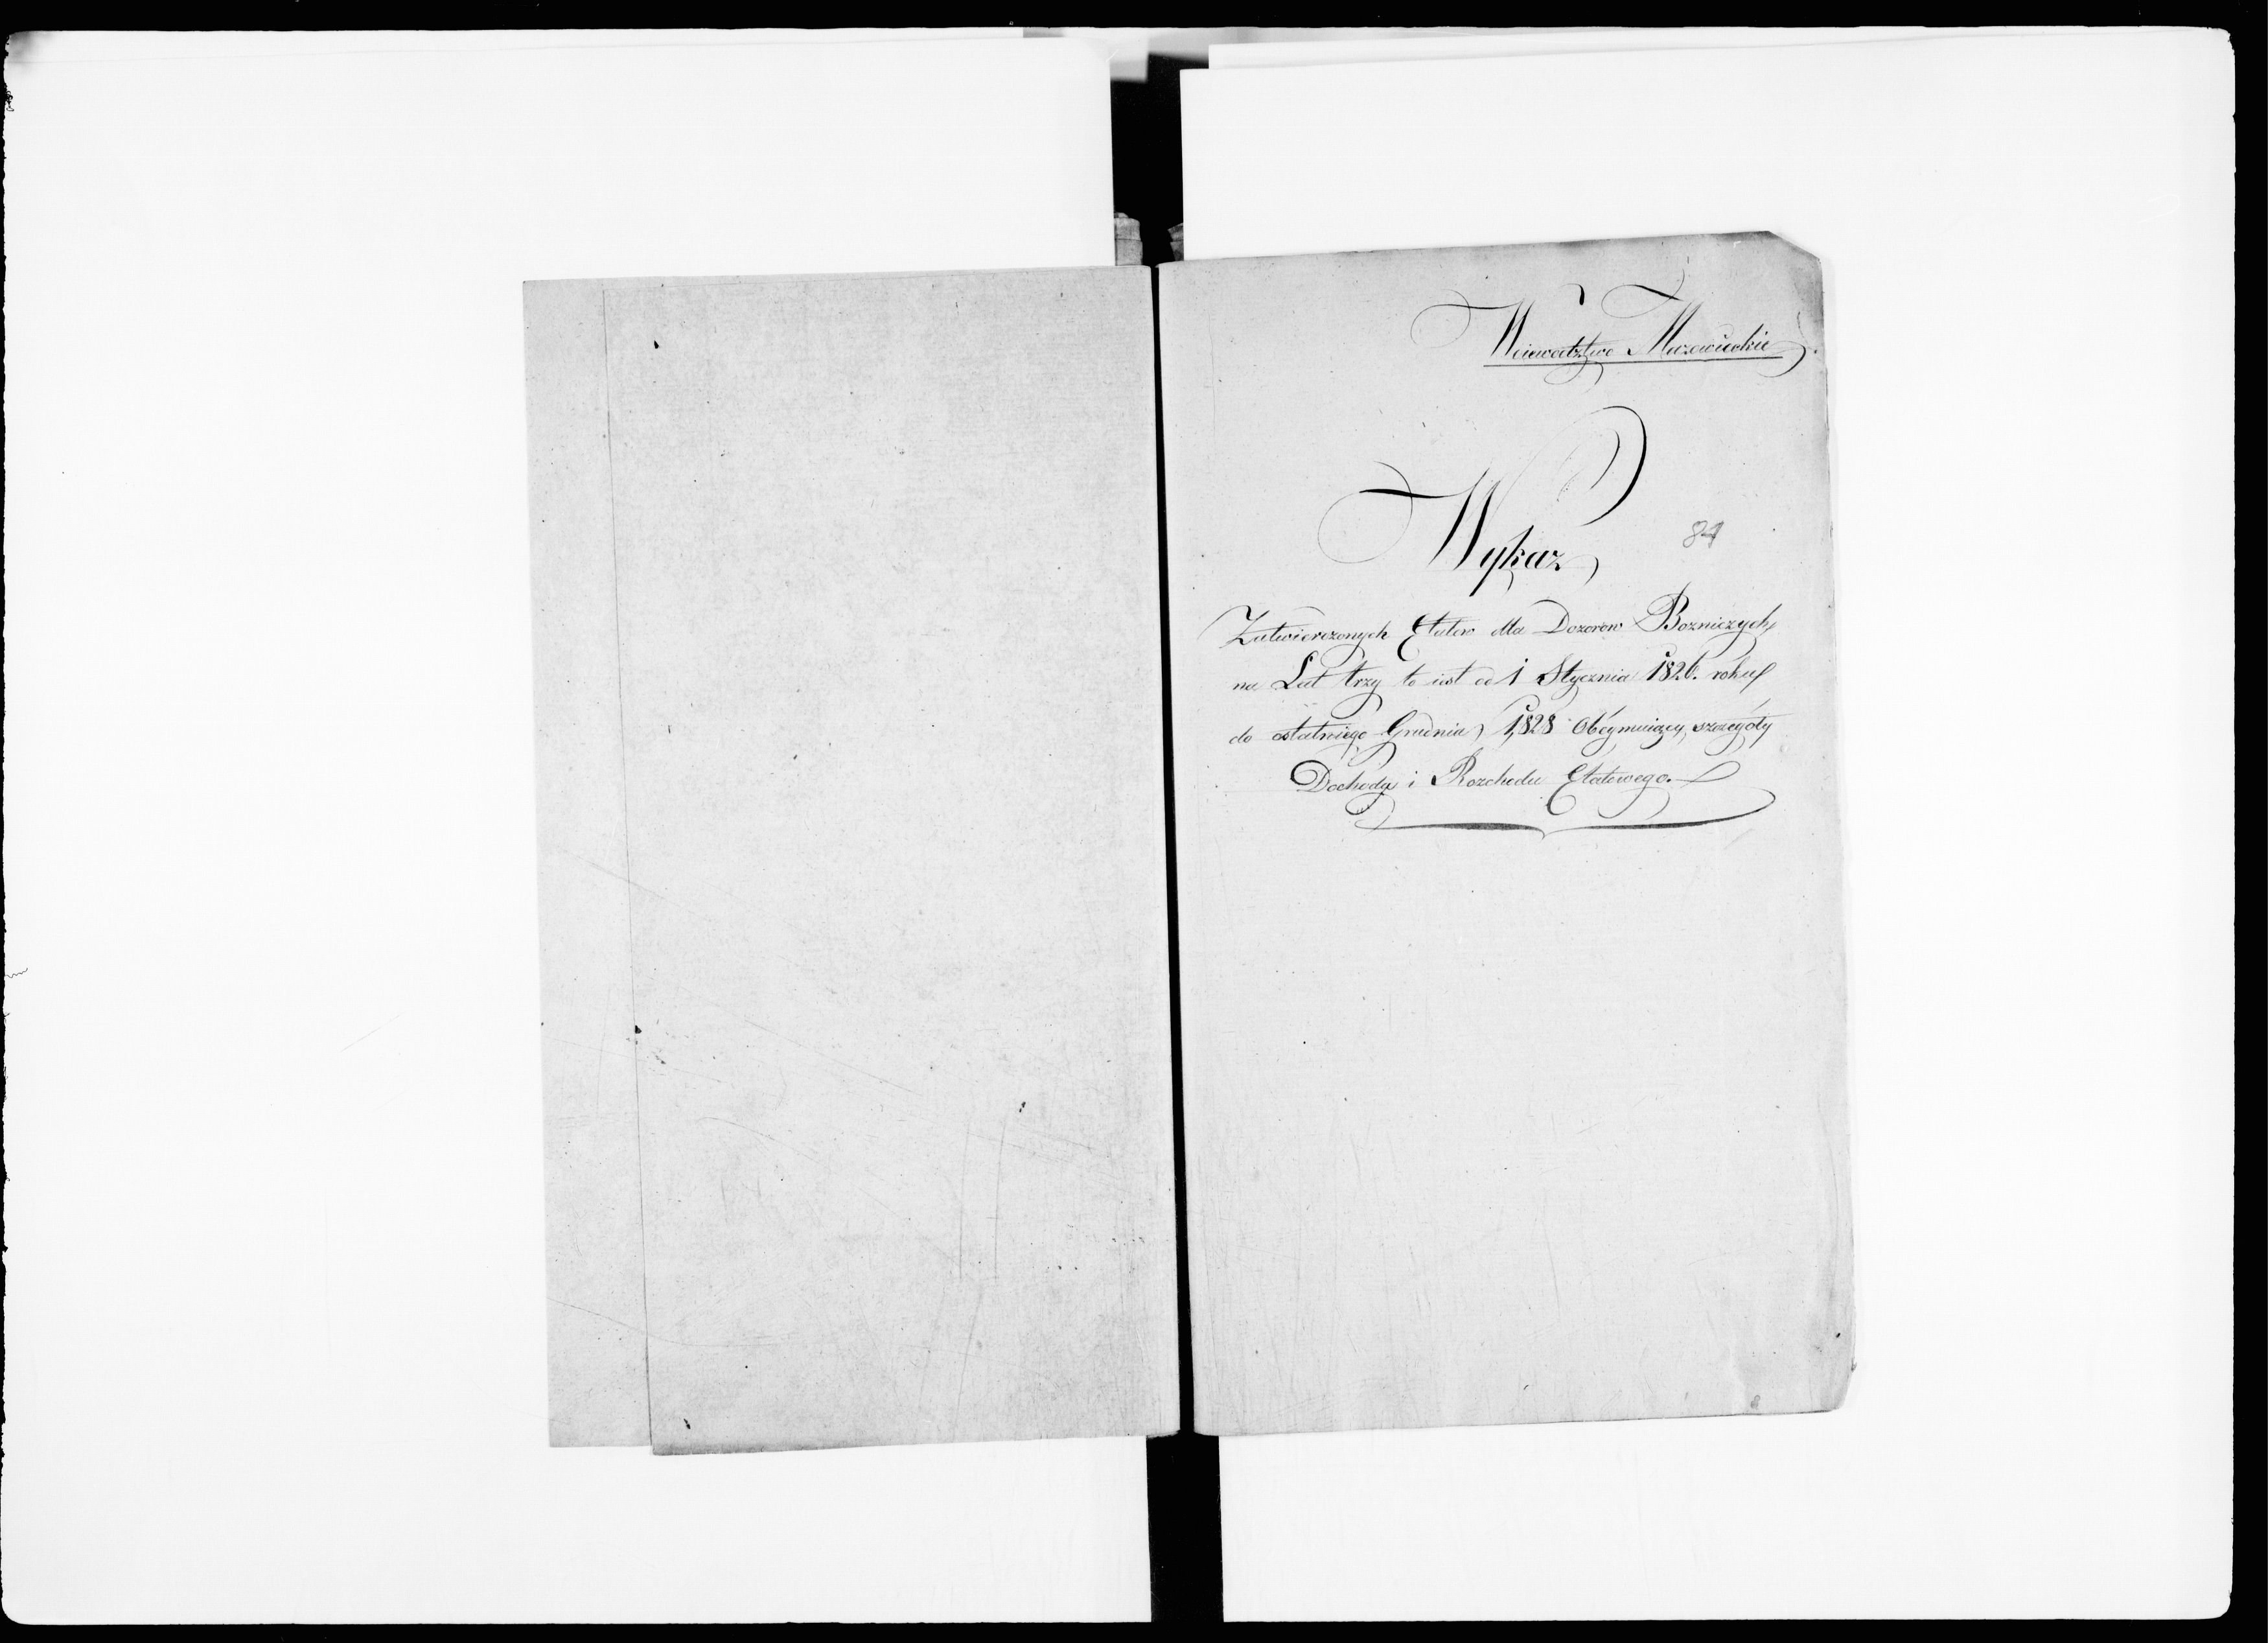 Woiewodztwo Mazowieckie.
Wykaz
84
Zatwierdzonych Etatow dla Dozorow Bozniczych
na Lat trzy to iest od 1 Stycznia 1826. roku
do ostatniego Grudnia 1828 obeymuiący szczegóły
Dochodu i Rozchodu Etatowego.